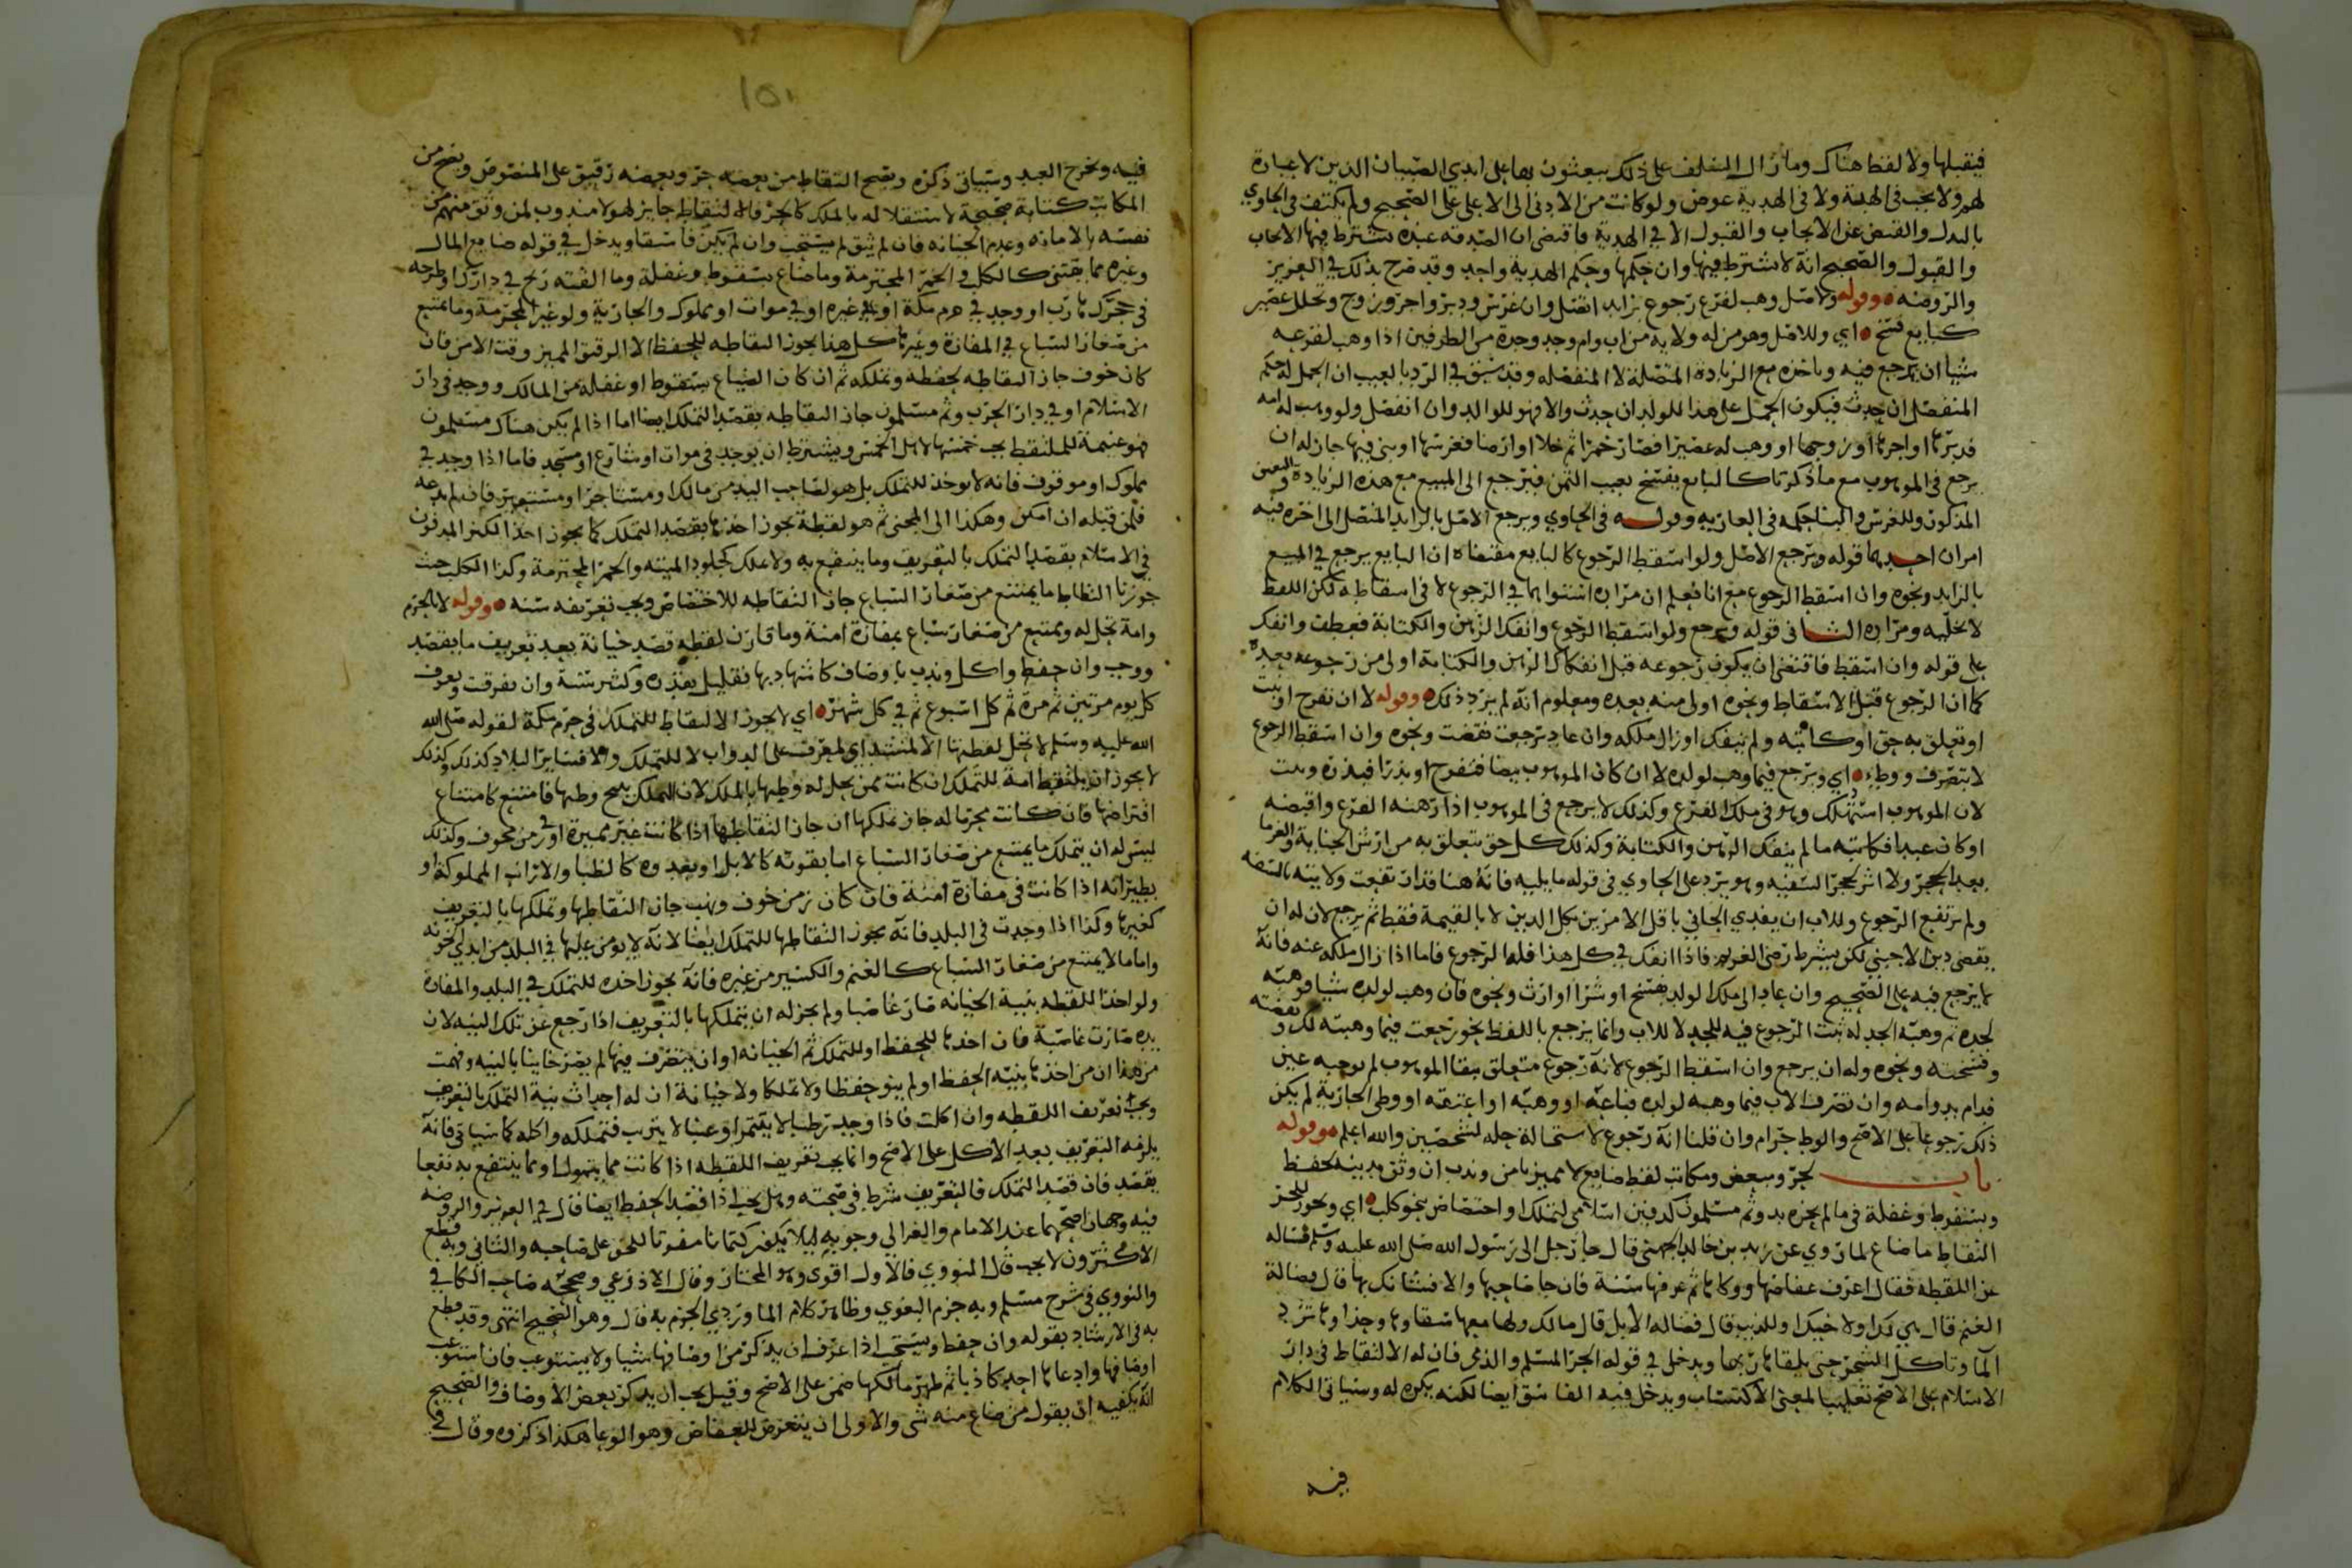 فيقبلها ولا لفظ هناك وما زال السلف على ذلك يبعثون بها على ايدي الصبيان الذين لا عبارة
لهم ولا يجب في الهبة ولا في الهدية عوض ولو كانت من الادنى الى الاعلى على الصحيح ولم يكتف في الحاوي
بالبدل والقبض عن الايجاب والقبول الا في الهدية فاقتضى ان الصدقه عنده يشترط فيها الايجاب
والقبول والصحيح انه لا يشترط فيها وان حكمها وحكم الهدية واحد وقد صرح بذلك في العزيز
والروضه وقوله ولاصل وهب لفرع رجوع بزايد اتصل وان غرس ودبر واجر وزوج وتخلل عصير
كبايع فسخ اي وللاصل وهو من له ولاية من اب وام وجد وجدة من الطرفين اذا وهب لفرعه
شيا ان يرجع فيه وياخذه مع الزيادة المتصلة لا المنفصله وقد سبق في الرد بالعيب ان الحمل له حكم
المنفصل ان حدث فيكون الحمل على هذا للولد ان حدث والا فهو للوالد وان انفصل ولو وهب له امه
فدبرها او اجرها او زوجها او وهب له عصيرا فصار خمرا ثم خلا او ارضا فغرسها او بنى فيها جاز له ان
يرجع في الموهوب مع ما ذكرنا كالبايع يفسخ بعيب الثمن فيرجع الى المبيع مع هذه الزيادة
المذكور وللغرس والبنا حكمه في العاريه وقوله في الحاوي ويرجع الاصل بالزايد المتصل الى اخره فيه
امران احدهما قوله ويرجع الاصل ولو اسقط الرجوع كالبايع مقتضاه ان البايع يرجع في المبيع
بالزايد ونحوه وان اسقط الرجوع مع انا نعلم ان مراده استواهما في الرجوع لا في اسقاطه لكن اللفظ
لا يخلصه ومراده الثاني قوله ويرجع ولو اسقط الرجوع وانفك الرهن والكتابة فعطف وانفك
على قوله وان اسقط فاقتضى ان يكون رجوعه قبل انفكاك الرهن والكتابة اولى من رجوعه بعده
كما ان الرجوع قبل الاسقاط ونحوه اولى منه بعده ومعلوم انه لم يرد ذلك وقوله لا ان تفرخ او نبت
او تعلق به حق او كاتبه ولم ينفك او زال ملكه وان عاد برجعت نقضت ونحوه وان اسقط الرجوع
لا بتصرف ووطء اي ويرجع فيما وهب لولده لا ان كان الموهوب بيضا فتفرخ او بذرا فبذره ونبت
لان الموهوب استهلك وهو في ملك الفرع وكذلك لا يرجع في الموهوب اذا رهنه الفرع واقبضه
او كان عبدا فكاتبه ما لم ينفك الرهن والكتابة وكذلك كل حق تتعلق به من ارش الجناية والغرما
بعد الحجر ولا اثر لحجر السفيه وهو يرد على الحاوي في قوله ما يليه فانه هنا قد انقطعت ولايته بالسفه
ولم يرتفع الرجوع وللاب ان يفدي الجاني باقل الامرين بكل الدين لا بالقيمة فقط ثم يرجع لان له ان
يقضي دين الاجنبي لكن بشرط رضى الغريم فاذا انفك في كل هذا فله الرجوع فاما اذا زال ملكه عنه فانه
لا يرجع فيه على الصحيح وان عاد الى ملك الولد بفسخ او شرا او ارث ونحوه فان وهب لولده شيا فوهبه
لجده ثم وهبه الجد له ثبت الرجوع فيه للجد لا للاب وانما يرجع باللفظ نحو رجعت فيما وهبته لك ونقضته
وفسخته ونحوه وله ان يرجع وان اسقط الرجوع لانه رجوع متعلق ببقا الموهوب لم يوجبه عين
فدام بدوامه وان تصرف الاب فيما وهبه لولده فباعه او وهبه او اعتقه او وطى الجارية لم يكن
ذلك رجوعا على الاصح والوطء حرام وان قلنا انه رجوع لاستحالة حله لشخصين والله اعلم وقوله
باب لحر ومبعض ومكاتب لقط ضايع لا مميز بامن وندب ان وثق بدينه لحفظ
وبسقوط وغفلة في ما لم يحزه يد وثم مسلمون كدفين اسلامي لتملك او اختصاص بنحو كلب اي ويجوز للحر
التقاط ما ضاع لما روي عن زيد بن خالد الجهني قال جا رجل الى رسول الله صلى الله عليه وسلم فساله
عن اللقطه فقال اعرف عفاصها ووكاها ثم عرفها سنة فان جا صاحبها والا فشانك بها قال فضالة
الغنم قال هي لك او لاخيك او للذيب قال فضاله الابل قال مالك ولها معها سقاوها وحذاوها ترد
الما وتاكل الشجر حتى يلقاها ربها ويدخل في قوله الحر المسلم والذمي فان له الالتقاط في دار
الاسلام على الاصح تغليبا لمعنى الاكتساب ويدخل فيه الفاسق ايضا لكنه يكره له وسياتي الكلام
فيه
١٥١
فيه ويخرج العبد وسياتي ذكره ويصح التقاط من بعضه حر وبعضه رقيق على المنصوص ويصح من
المكاتب كتابة صحيحة لاستقلاله بالملك كالحر فالالتقاط جايز لهولا مندوب لمن وثق منهم من
نفسه بالامانه وعدم الخيانه فان لم يثق لم يستحب وان لم يكن فاسقا ويدخل في قوله ضايع المال
وغيره مما يقتنى كالكلب والخمر المحترمة وما ضاع بسقوط وغفلة وما القته ريح في دارك او طرحه
في حجرك هارب او وجد في حرم مكة او في غيره او في موات او مملوك والجارية ولو غير المحرمة وما يمتنع
من صغار السباع في المفازة وغيرها كل هذا يجوز التقاطه للحفظ الا الرقيق المميز وقت الامن فان
كان خوف جاز التقاطه لحفظه وتملكه ثم ان كان الضياع بسقوط او غفله من المالك ووجد في دار
الاسلام او في دار الحرب وثم مسلمون جاز التقاطه بقصد التملك ايضا اما اذا لم يكن هناك مسلمون
فهو غنيمة للملتقط يجب خمسها لاهل الخمس ويشترط ان يوجد في موات او شارع او مسجد فاما اذا وجد في
مملوك او موقوف فانه لا يوخذ للتملك بل هو لصاحب اليد من مالك او مستاجر او مستعير فان لم يدعه
فلمن قبله ان امكن وهكذا الى المحيي ثم هو لقطة يجوز اخذها بقصد التملك كما يجوز اخذ الكنز المدفون
في الاسلام بقصد التملك بالتعريف وما ينتفع به ولا يملك كجلود الميته والخمر المحترمة وكذا الكلب حيث
جوزنا التقاط ما يمتنع من صغار السباع جاز التقاطه للاختصاص ويجب تعريفه سنه وقوله لا بالحرم
وامة تحل له وممتنع من صغار سباع بمفازة امنة وما قارن لقطه قصد خيانة بعد تعريف ما يقصد
ووجب وان حفظ واكل وندب باوصاف كاشهاد بها فقليل بقدره وكثير سنة وان تفرقت ويعرف
كل يوم مرتين ثم مرة ثم كل اسبوع ثم في كل شهر اي لا يجوز الالتقاط للتملك في حرم مكة لقوله صلى الله
الله عليه وسلم لا تحل لقطتها الا لمنشد اي لمعرف على الدواب لا للتملك والا فساير البلاد كذلك وكذلك
لا يجوز ان يلتقط امة للتملك ان كانت ممن يحل له وطيها بالملك لان التملك يبيح وطيها فامتنع كامتناع
اقتراضها فان كانت محرما له جاز تملكها ان جاز التقاطها اذا كانت غير مميزة او في زمن مخوف وكذلك
ليس له ان يتملك ما يمتنع من صغار السباع اما بقوته كالابل او بعدوه كالظبا والارانب المملوكة او
بطيرانه اذا كانت في مفازة امنة فان كان زمن خوف ونهب جاز التقاطها وتملكها بالتعريف
كغيرها وكذا اذا وجدت في البلد فانه يجوز التقاطها للتملك ايضا لانه لا يومن عليها في البلد من ايدي الخونه
واما ما لا يمتنع من صغار السباع كالغنم والكسير من غيره فانه يجوز اخذه للتملك في البلد والمفازة
ولو اخذ اللقطه بنية الخيانه صار غاصبا ولم يجز له ان يتملكها بالتعريف اذا رجع عن تلك النيه لان
يده صارت غاصبة فان اخذها للحفظ او للتملك ثم الخيانه او ان يتصرف فيها لم يصر خاينا بالنيه وفهمت
من هذا ان من اخذها بنية الحفظ او لم ينو حفظا ولا تملكا ولا خيانة ان له احداث نية التملك بالتعريف
ويجب تعريف اللقطه وان اكلت فاذا وجد رطبا لا يتتمر او عنبا لا يتزبب فتملكه واكله كما سياتي فانه
يلزمه التعريف بعد الاكل على الاصح وانما يجب تعريف اللقطه اذا كانت مما يتمول او مما ينتفع به نفعا
يقصد فان قصد التملك فالتعريف شرط في صحته وهل يجب اذا قصد الحفظ ايضا قال في العزيز والروضه
فيه وجهان اصحهما عند الامام والغزالي وجوبه ليلا يكون كتمانا مفوتا للحق على صاحبه والثاني وبه قطع
الاكثرون لا يجب قال النووي فالاول اقوى وهو المختار وقال الاذرعي وصححه صاحب الكافي
والنووي في شرح مسلم وبه جزم البغوي وظاهر كلام الماوردي الجزم به قال وهو الصحيح انتهى وقد قطع
به في الارشاد بقوله وان حفظ ويستحب اذا عرف ان يذكر من اوصافها شيا ولا يستوعب فان استوعب
اوصافها وادعاها احد كاذبا ثم ظهر مالكها ضمن على الاصح وقيل يجب ان يذكر بعض الاوصاف والصحيح
انه يكفيه ان يقول من ضاع منه شي والاولى ان يتعرض للعفاص وهو الوعا هكذا ذكروه وقال في